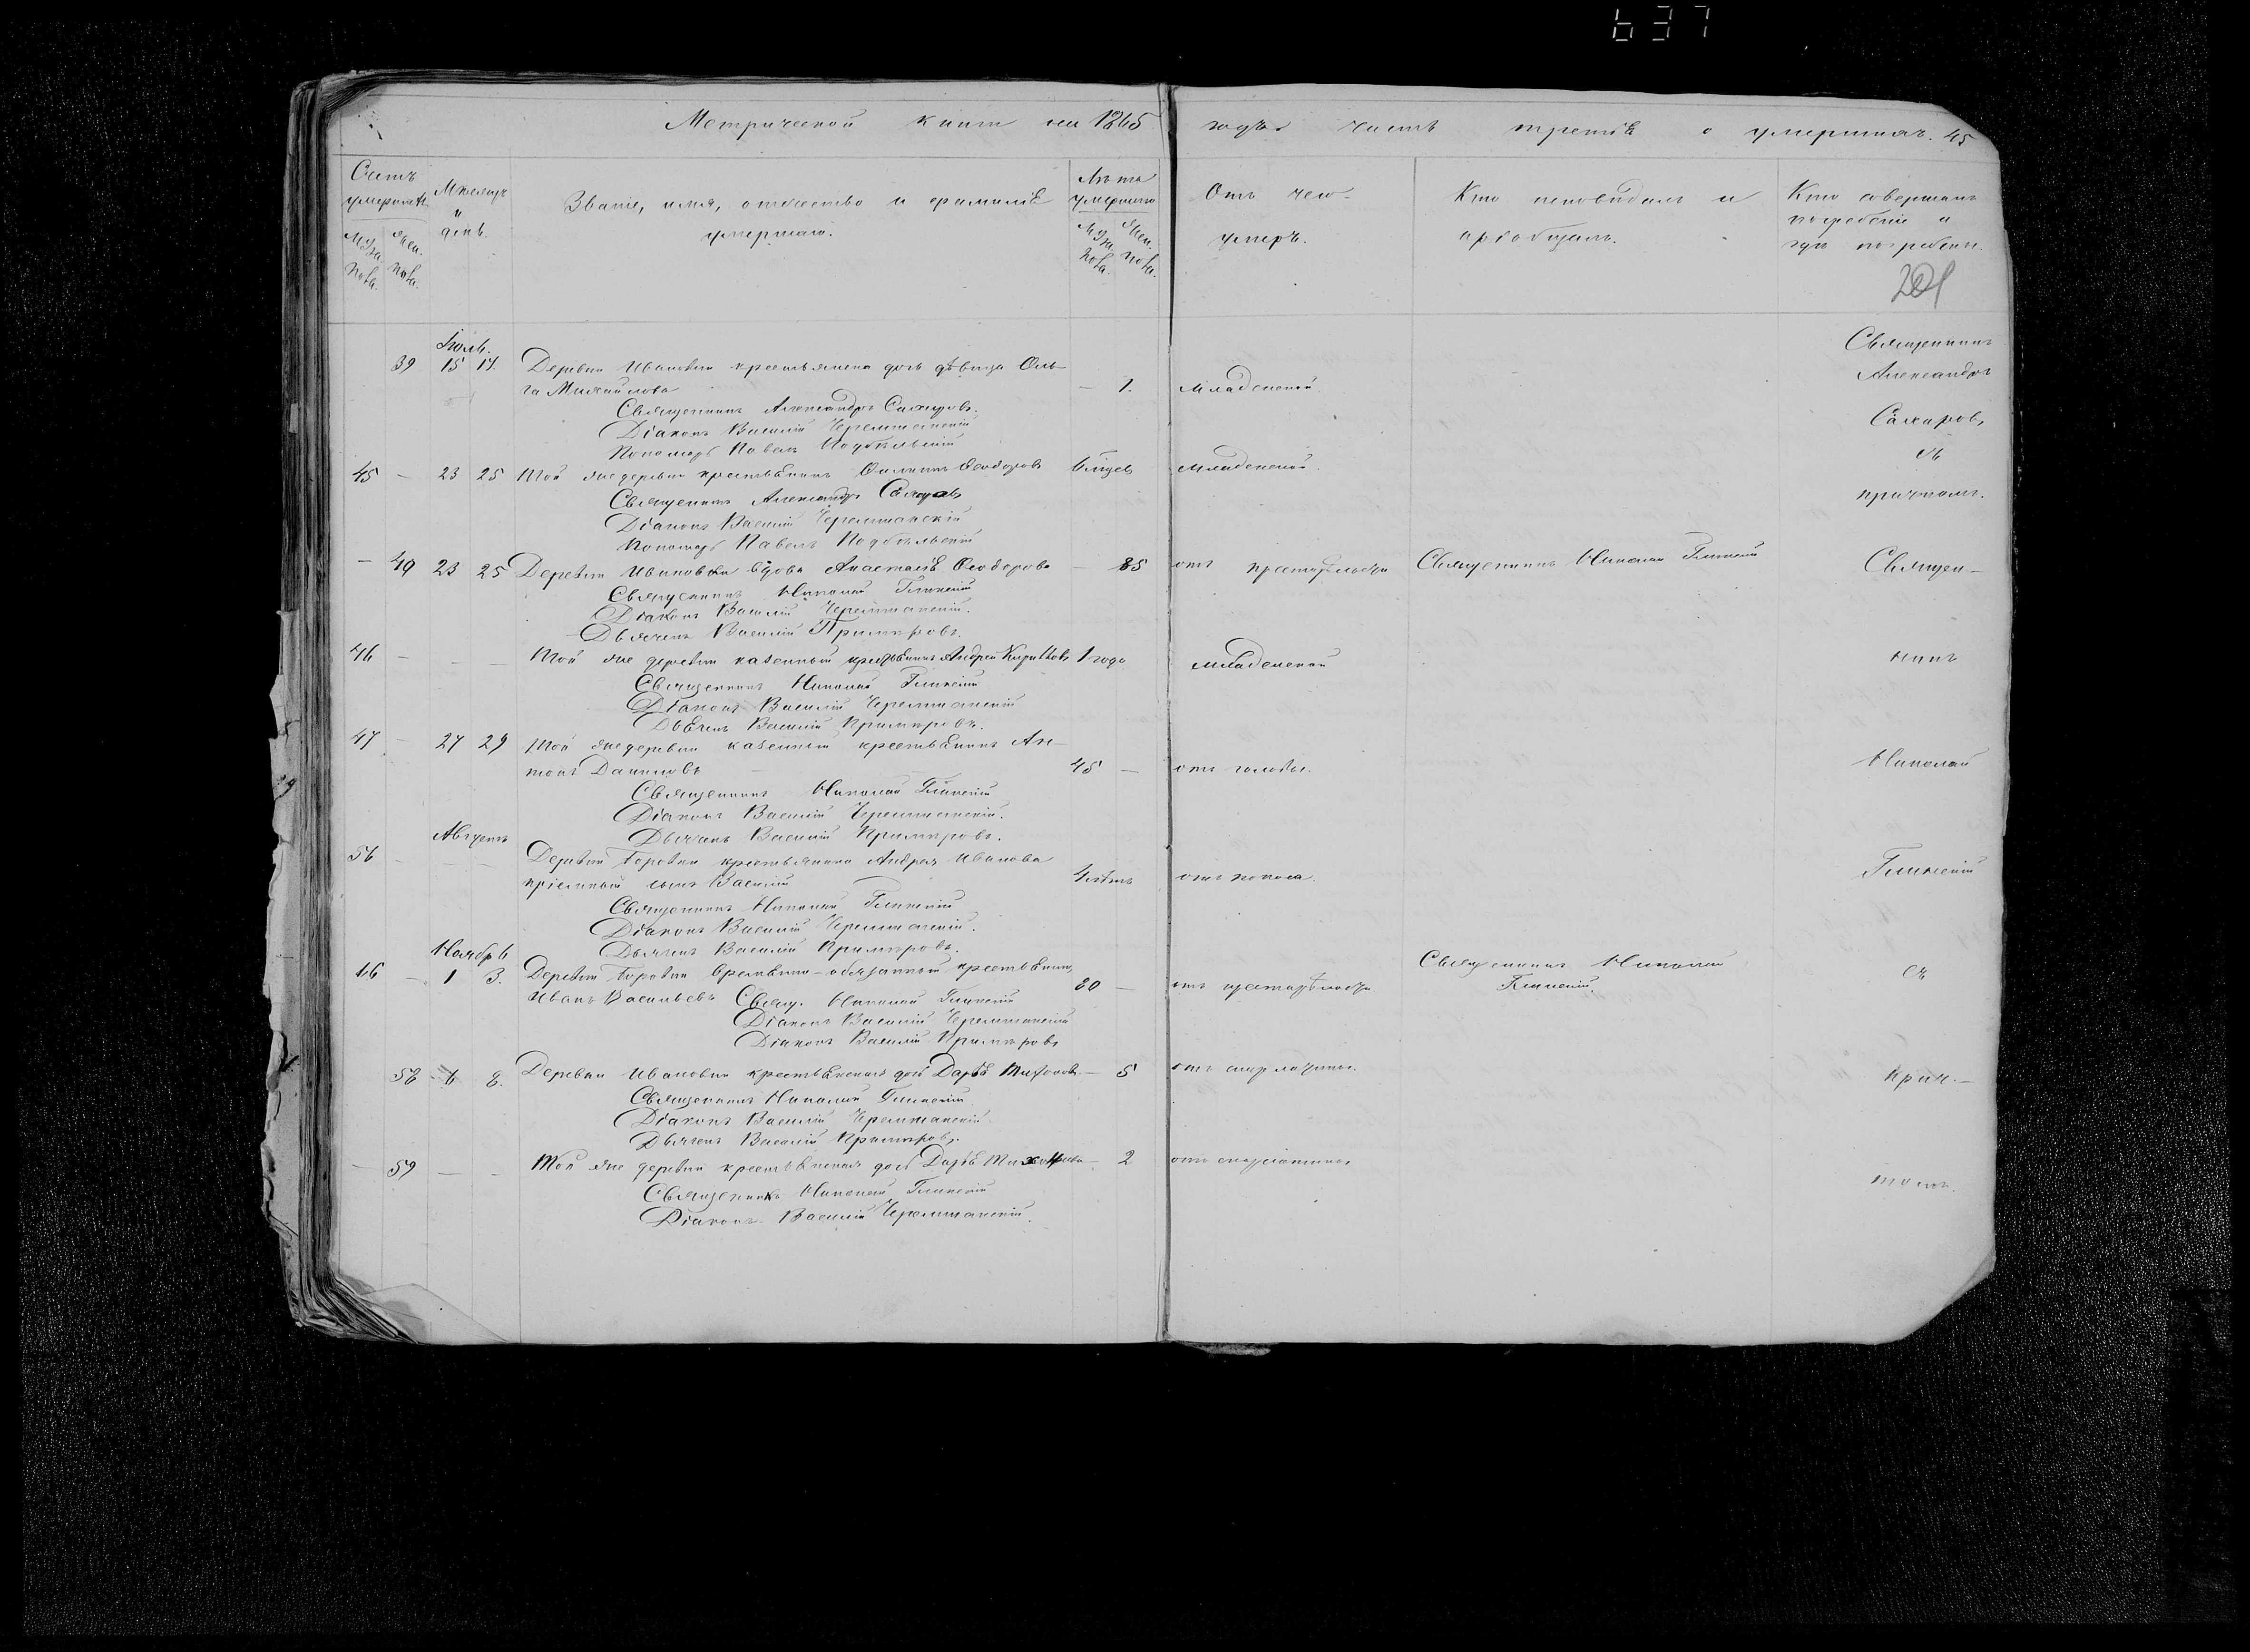 637
Метрической книги на 1865 года часть третія о умершихъ. 45
Счетъ умершихъ
Мѣсяцъ и день.
Званіе, имя, отчество и фамилія умершаго.
Лѣта умершаго
Отъ чего умеръ.
Кто исповѣдалъ и пріобщалъ.
Кто совершалъ погребеніе и гдѣ погребены.
Муж. пола. Жен. пола.
Муж. пола. Жен. пола.
201
Іюль.
39 15 17. Деревни Ивановки крестьянина дочь дѣвица Оль-
га Михайлова — 1. младенской.
Священникъ Александръ Сахаровъ.
Діаконъ Василій Черемшанскій
Пономарь Павелъ Подбѣльскій
Священникъ
Александръ
Сахаровъ,
съ
причтомъ.
45 — 23 25 Той же деревни крестьянинъ Филиппъ Ѳеодоровъ младенской.
Священникъ Александръ Сахаровъ
Діаконъ Василій Черемшанскій
Пономарь Павелъ Подбѣльскій
— 49 23 25 Деревни Ивановки вдова Анастасія Ѳеодорова — 85 отъ престарѣлости Священникъ Николай Глинскій
Священникъ Николай Глинскій
Діаконъ Василій Черемшанскій.
Дьячекъ Василій Примѣровъ.
46 — — — Той же деревни казенный крестьянинъ Андрей 1 года младенской
Священникъ Николай Глинскій
Діаконъ Василій Черемшанскій
Дьячекъ Василій Примѣровъ.
47 — 27 29 Той же деревни казенный крестьянинъ Ан-
тонъ Даниловъ 45 — отъ головы.
Священникъ Николай Глинскій
Діаконъ Василій Черемшанскій.
Дьячекъ Василій Примѣровъ.
Августъ
56 — — — Деревни Боровки крестьянина Андрея Иванова
пріемный сынъ Василій 4 лѣтъ отъ поноса.
Священникъ Николай Глинскій
Діаконъ Василій Черемшанскій.
Дьячекъ Василій Примѣровъ.
Ноябрь
66 — 1 3. Деревни Боровки временно-обязанный крестьянинъ
Иванъ Васильевъ 80 — отъ престарѣлости Священникъ Николай Глинскій.
Свящ. Николай Глинскій
Діаконъ Василій Черемшанскій
Діаконъ Василій Примѣровъ
58 6 8. Деревни Ивановки крестьянская дочь Дарья — 5
Священникъ Николай Глинскій
Діаконъ Василій Черемшанскій
Дьячекъ Василій Примѣровъ.
— 59 — — Той же деревни крестьянская дочь Дарья — 2
Священникъ Николай Глинскій
Діаконъ Василій Черемшанскій.
Священ-
никъ
Николай
Глинскій
съ
прич-
томъ.